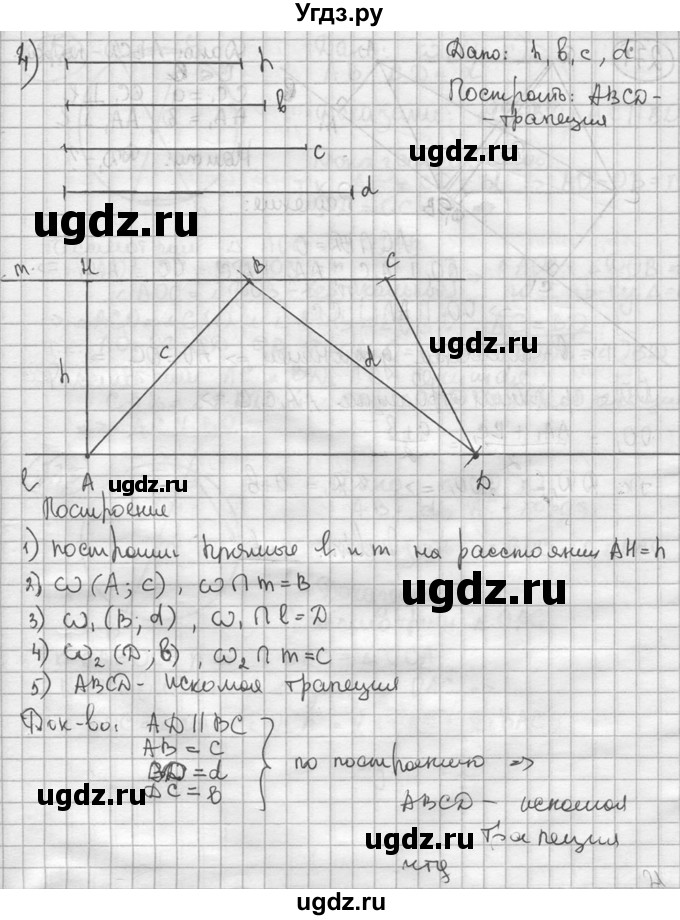 Угдз.ру
4)
h
b
c
d
Дано: h, b, c, d
Построить: ABCD -
- трапеция
ugdz.ru
ugdz.ru
m
H
B
C
h
c
d
ugdz.ru
l
A
ugdz.ru
D
Построение
1) построим прямые l и m на расстоянии AH = h
2) ω (A; c), ω ∩ m = B
ugdz.ru
3) ω₁ (B; d), ω₁ ∩ l = D
4) ω₂ (D; b), ω₂ ∩ m = C
5) ABCD - искомая трапеция
Док-во: AD || BC
AB = c
BD = d
DC = b
по построению =>
ugdz.ru
ABCD - искомая
трапеция
ugdz.ru
чтд
ugdz.ru